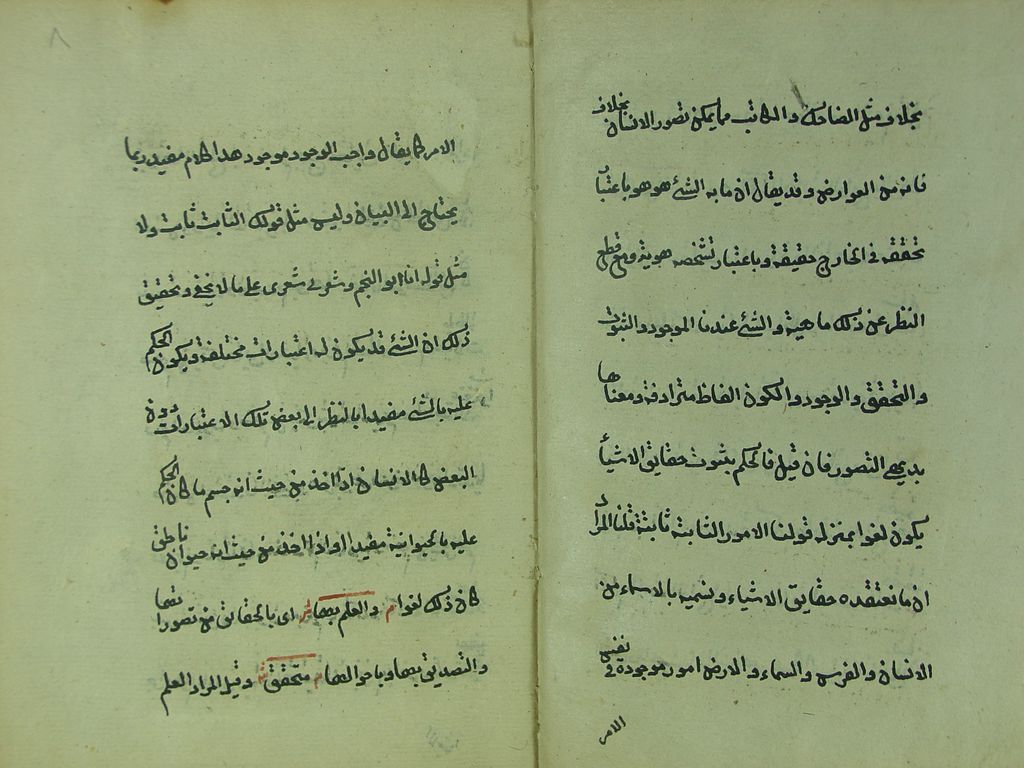 بخلاف مثل الضاحك والكاتب مما يمكن تصور الانسان بخلاف
فانه من العوارض وقد يقال ان ما به الشئ هو هو باعتبار
تحققه في الخارج حقيقة وباعتبار تشخصه هوية ومع قطع
النظر عن ذلك ماهية والشئ عندنا الموجود والثبوت
والتحقق والوجود والكون الفاظ مترادفة ومعناها
بديهي التصور فان قيل فالحكم بثبوت حقايق الاشيآ
يكون لغوا بمنزله قولنا الامور الثابتة ثابتة قلنا المراد
ان ما نعتقده حقايق الاشياء ونسميه بالاسماء من
الانسان والفرس والسماء والارض امور موجودة في نفس
الامر
الامر كما يقال واجب الوجود موجود هذا الكلام مفيد ربما
يحتاج الى البيان وليس مثل قولك الثابت ثابت ولا
مثل قوله انا ابو النجم وشعرى شعرى على ما لا يخفى وتحقيق
ذلك ان الشئ قد يكون له اعتبارات مختلفة ويكون الحكم
عليه بالشئ مفيدا بالنظر الى بعض تلك الاعتبارات دون
البعض كالانسان اذا اخذ من حيث انه جسم ما كان الحكم
عليه بالحيوانية مفيدا واذا اخذ من حيث انه حيوان ناطق
كان ذلك لغوا م والعلم بها ش اى بالحقائق من تصوراتها
والتصديق بها وباحوالها م متحقق ش وقيل المراد العلم
٨